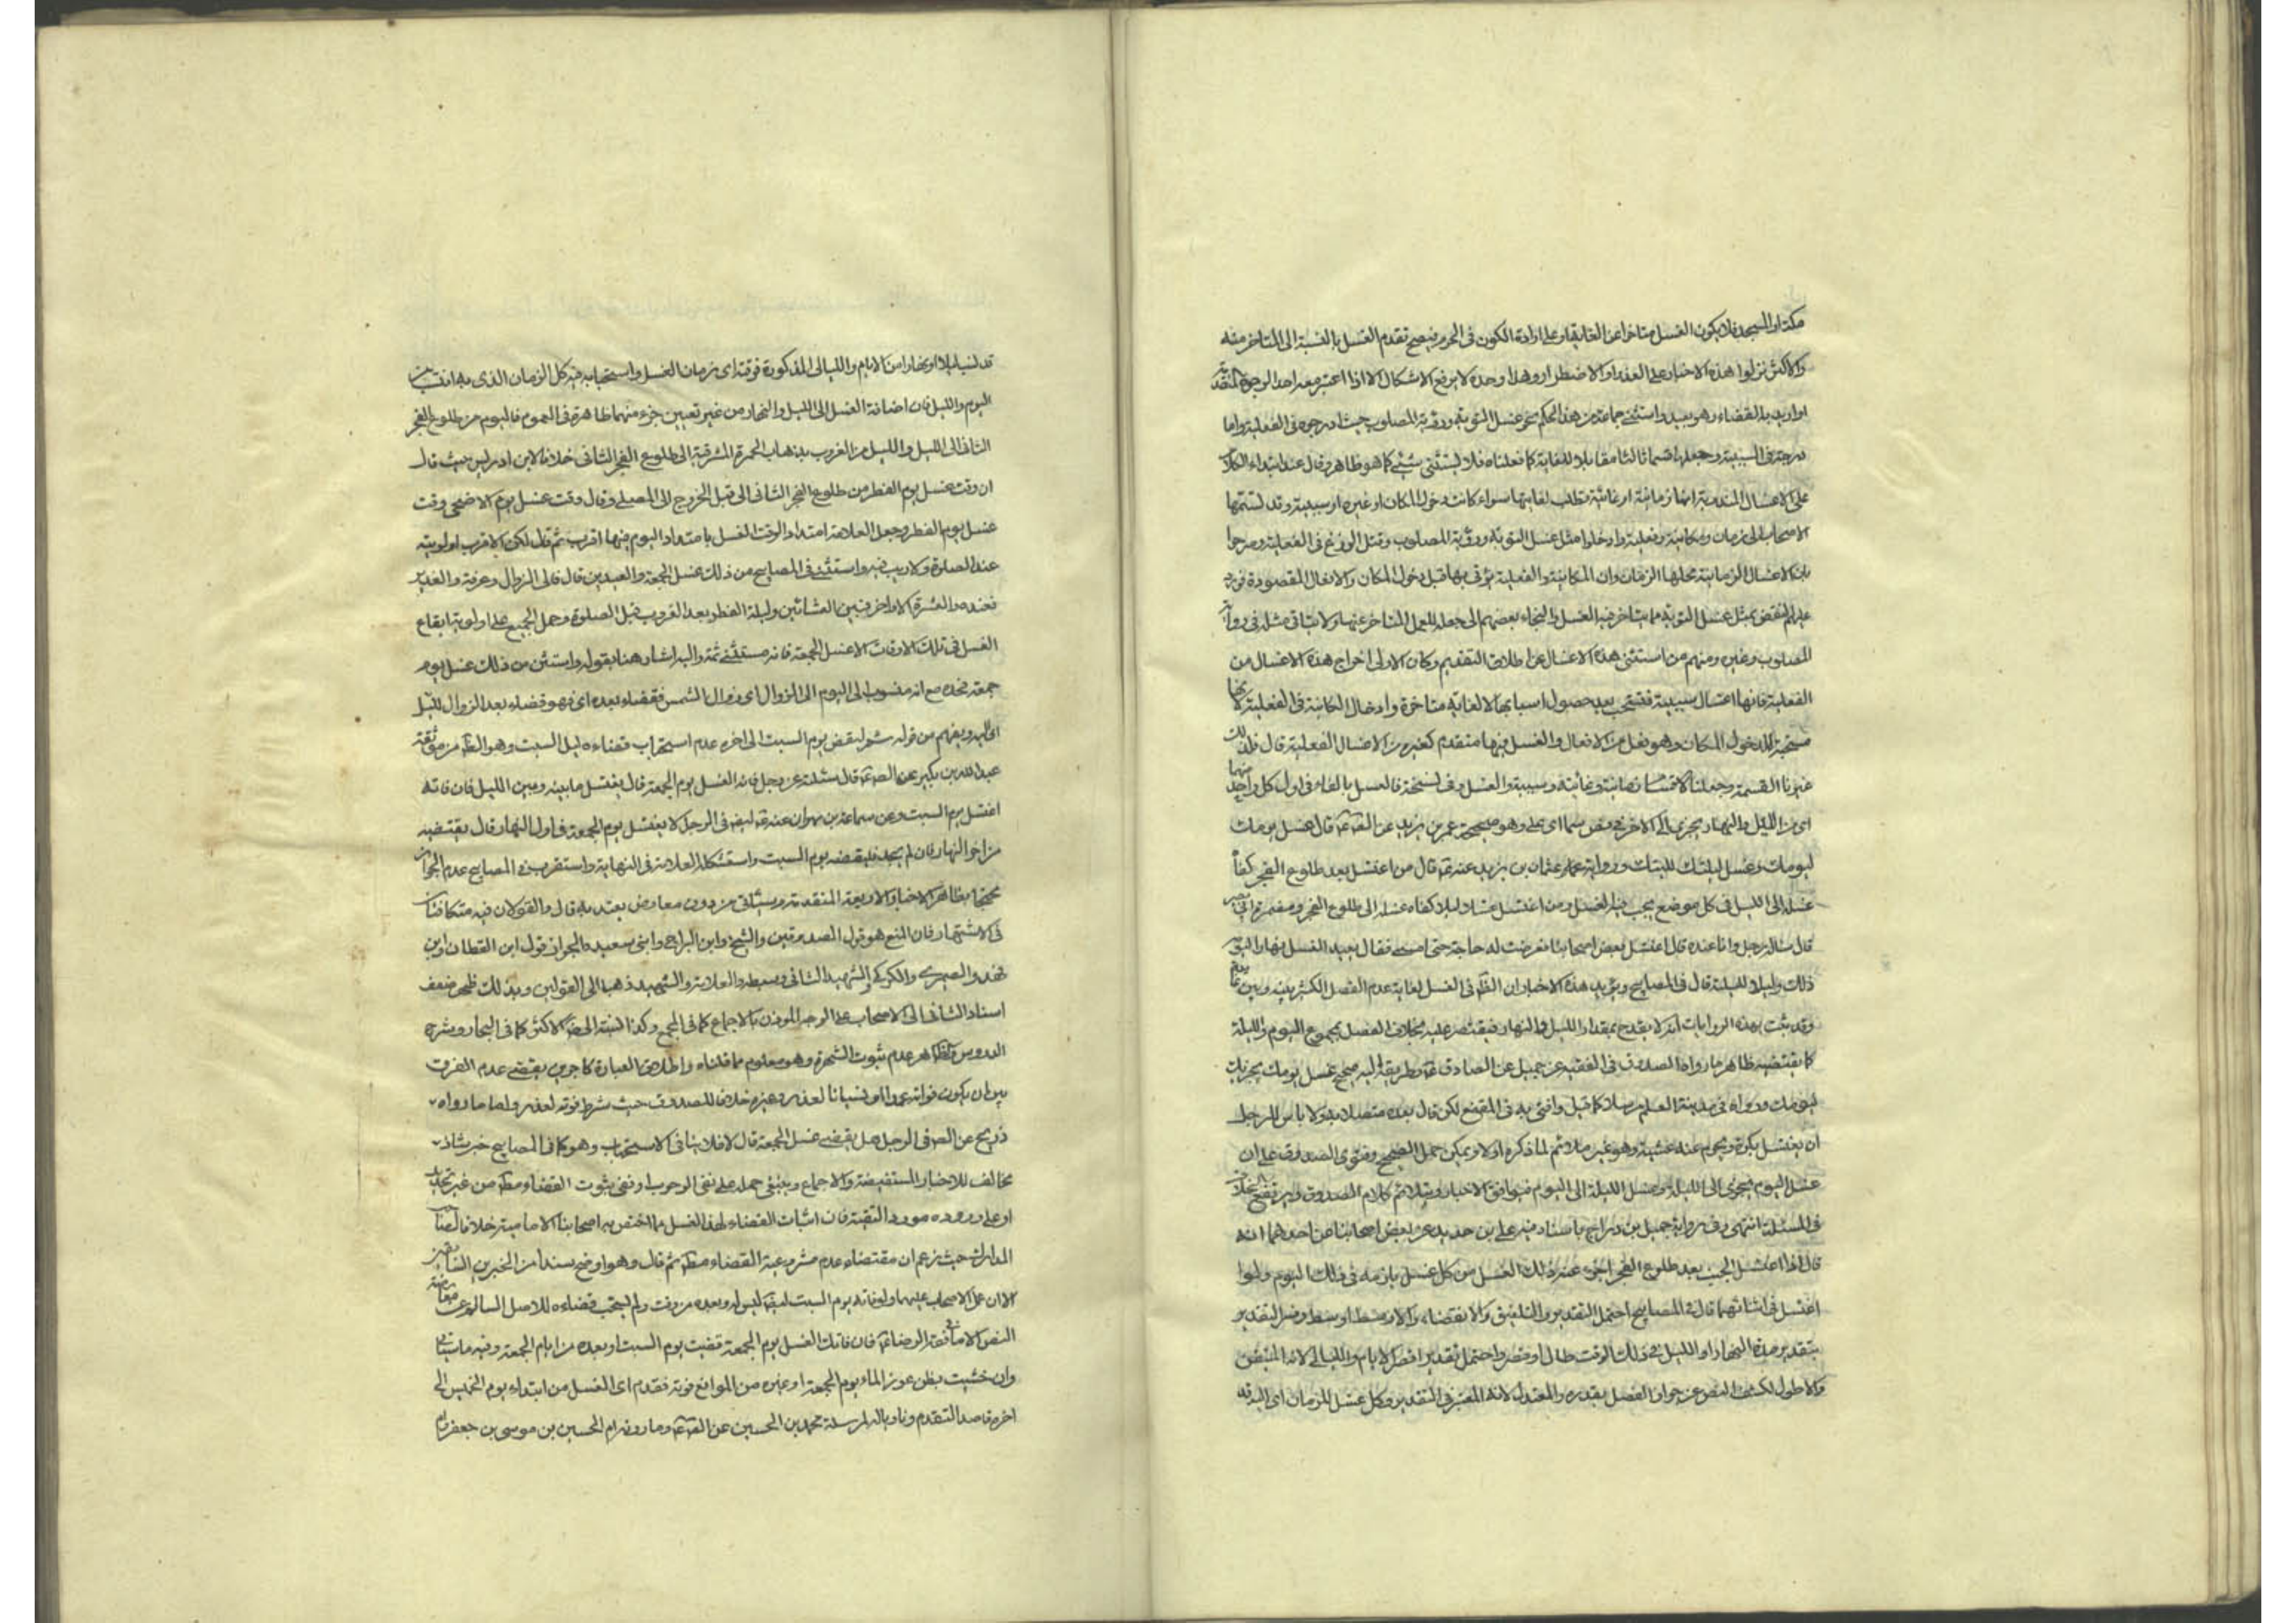 مكة او المسجد فلا يكون الغسل متاخرا عن الغاية او على ارادة الكون في الحرم فيصح تقدم الغسل بالنسبة الى المتاخر منه
والاكثر نزلوا هذه الاخبار على العذر او الاضطرار وهذا وحده لا يرفع الاشكال الا اذا اعتبر معه احد الوجوه المتقدمة
او اريد به القضاء وهو بعيد واستثنى جماعة من هذا الحكم نحو غسل التوبة ورؤية المصلوب حيث ادرجوه في الفعلية واما
درجته في السببية وجعلها قسما ثالثا مقابلا للغاية كما فعلناه فلا يستثنى شيء كما هو ظاهر وقال عند ابتداء الكلام
على الاغسال المندوبة انها زمانية او غائية تطلب لغايتها سواء كانت دخول المكان او غيره او سببية وقد قسمها
الاصحاب الى زمان ومكانية وفعلية وادخلوا مثل غسل التوبة ورؤية المصلوب وقتل الوزغ في الفعلية وصرحوا
بان الاغسال الزمانية محلها الزمان وان المكانية والفعلية يؤتى بها قبل دخول المكان والافعال المقصودة فورد
عليهم النقض بمثل غسل التوبة مما يتاخر فيه الغسل والتجاء بعضهم الى جعله للعمل المتاخر عنها ولا يتاتى مثله في رؤية
المصلوب وغيره ومنهم من استثنى هذه الاغسال عن اطلاق التقديم وكان الاولى اخراج هذه الاغسال من
الفعلية فانها اغسال سببية فتستحب بعد حصول اسبابها لا لغاية متاخرة وادخال المكانية في الفعلية لانها
مستحبة للدخول المكان وهو فعل من الافعال والغسل فيها متقدم كغيره من الاغسال الفعلية قال فلذلك
غيرنا القسمة وجعلنا الاقسام زمانية وغائية وسببية والغسل وفي نسخة فالغسل بالفاء في اول كل واحد منهما
اي من الليل والنهار يجزي الى الاخر في بعض سمااي على وهو صحيحة عمر بن يزيد عن الصّ عّ قال غسل يومك
ليومك وغسل ليلتك لليلتك ورواية عثمان بن يزيد عنه عّ قال من اغتسل بعد طلوع الفجر كفاه
غسله الى الليل في كل موضع يجب فيه الغسل ومن اغتسل ليلا كفاه غسله الى طلوع الفجر ومضمرة ابي بصير
قال سأله رجل وانا عنده قال اغتسل بعض اصحابنا فعرضت له حاجة حتى امسى فقال يعيد الغسل نهارا ليومه
ذلك وليلا لليلته قال في المصابيح ويؤيد هذه الاخبار ان الظّ في الغسل لغاية عدم الفصل الكثير بينه وبين غايته
وقد ثبت بهذه الروايات انه لا يقدح بمقدار الليل والنهار فيقتصر عليه بخلاف الفصل بمجموع اليوم والليلة
كما يقتضيه ظاهر ما رواه الصدوق في الفقيه عن جميل عن الصادق عّ وطريقه اليه صحيح غسل يومك يجزيك
ليومك ورواه في مدينة العلم مرسلا كما قيل وافتى به في المقنع لكن قال بعده متصلا به ولا باس للرجل
ان يغتسل بكرة ويحرم عنده عشية وهو غير ملائم لما ذكره اولا ويمكن حمل الصحيح وفتوى الصدوق على ان
غسل اليوم يجزي الى الليلة وغسل الليلة الى اليوم فيوافق الاخبار ويتلائم كلام الصدوق ويرتفع الخلاف
في المسئلة انتهى وفي رواية جميل بن دراج باسناد فيه علي بن حديد عن بعض اصحابنا عن احدهما انه
قال اذا اغتسل الجنب بعد طلوع الفجر اجزء عنه ذلك الغسل من كل غسل يلزمه في ذلك اليوم ولو
اغتسل في اثنائهما قال في المصابيح احتمل التقدير والتلفيق والانقضاء والاوسط اوسط وفسر التقدير
بتقدير مدة النهار او الليل في ذلك الوقت طال او قصر واحتمل تقدير اقصر الايام والليالي لانه المتيقن
والاطول لكشف النص عن جواز الفصل بقدره والمعتدل لانه المعتبر في التقدير وكل غسل للزمان اي الذي
قد نسب ليلا او نهارا من الايام والليالي المذكورة فوقته اي زمان الغسل واستحبابه فيه كل الزمان الذي به انتسب من
اليوم والليل فان اضافة الغسل الى الليل والنهار من غير تعيين جزء منهما ظاهرة في العموم فاليوم من طلوع الفجر
الثاني الى الليل والليل من الغروب بذهاب الحمرة المشرقية الى طلوع الفجر الثاني خلافا لابن ادريس حيث قال
ان وقت غسل يوم الفطر من طلوع الفجر الثاني الى قبل الخروج الى المصلى وقال وقت غسل يوم الاضحى وقت
غسل يوم الفطر وجعل العلامة امتداد الوقت الغسل بامتداد اليوم فيهما اقرب ثم قال لكن الاقرب اولويته
عند الصلوة ولا ريب فيه واستثنى في المصابيح من ذلك غسل الجمعة والعيدين قال فالى الزوال وعرفة والغدير
فعنده والعشرة الاواخر فبين العشائين وليلة الفطر بعد الغروب قبل الصلوة وحمل الجميع على اولوية ايقاع
الغسل في تلك الاوقات الا غسل الجمعة فانه مستثنى ثمة واليه اشار هنا بقوله واستثن من ذلك غسل يوم
جمعة فحده مع انه منسوب الى اليوم الى الزوال اي زوال الشمس فقضاء بعده اي فهو قضاء بعد الزوال لليل
اي اليه ويفهم من قوله ثم ليقض يوم السبت الى اخره عدم استحباب قضاءه ليل السبت وهو الظّ من موثقة
عبد الله بن بكير عن الصّ عّ قال سئلته عن رجل فاته الغسل يوم الجمعة قال يغتسل ما بينه وبين الليل فان فاته
اغتسل يوم السبت وعن سماعة بن مهران عنه عّ ايضا في الرجل لا يغتسل يوم الجمعة في اول النهار قال يقضيه
من اخر النهار فان لم يجد فليقضه يوم السبت واستشكله العلامة في النهاية واستقرب في المصابيح عدم الجواز
محتجا بظاهر الاخبار الاربعة المتقدمة وسيئاتي من دون معارض يعتد به قال والقولان فيه متكافئان
في الاشتهار فان المنع هو قول الصدوقين والشيخ وابن البراج وابني سعيد والجواز قول ابن القطان وابن
فهد والصيمري والكركي والشهيد الثاني وسبطه والعلامة والشهيد ذهبا الى القولين وبذلك ظهر ضعف
اسناد الثاني الى الاصحاب على الوجه المؤذن بالاجماع كما في المجمع وكذا النسبة الى الاكثر كما في البحار وشرح
الدروس والظاهر عدم ثبوت الشهرة وهو معلوم مما قلناه واطلاق العبارة كاجزيه يقتضي عدم الفرق
بين ان يكون فواته عمدا او نسيانا لعذر وغيره خلافا للصدوق حيث شرط فوته لعذر واما ما رواه
ذريح عن الصّ في الرجل هل يقضي غسل الجمعة قال لا فلا ينافي الاستحباب وهو كما في المصابيح خبر شاذ
مخالف للاخبار المستفيضة والاجماع وينبغي حمله على نفي الوجوب او نفي ثبوت القضاء مطّ من غير تحديد
او على وروده مورد التقية فان اثبات القضاء لهذا الغسل مما اختص به اصحابنا الامامية خلافا لصاحب
المدارك حيث زعم ان مقتضاه عدم مشروعية القضاء مطّ ثم قال وهو اوضح سندا من الخبرين السابقين
الا ان عمل الاصحاب عليهما ولو فاته يوم السبت ايضا ليس له بعده من وقت ولم يستحب قضاءه للاصل السالم عن معارضة
النص الا ما في فقه الرضا عّ فان فاتك الغسل يوم الجمعة قضيت يوم السبت او بعده من ايام الجمعة وفيه ما سيأتي
وان خشيت بظن عوز الماء يوم الجمعة او غيره من الموانع فوته فقدم اي الغسل من ابتداء يوم الخميس الى
اخره قاصدا التقدم وناويا له لمرسلة محمد بن الحسين عن الصّ عّ وما روته ام الحسين بن موسى بن جعفر وام